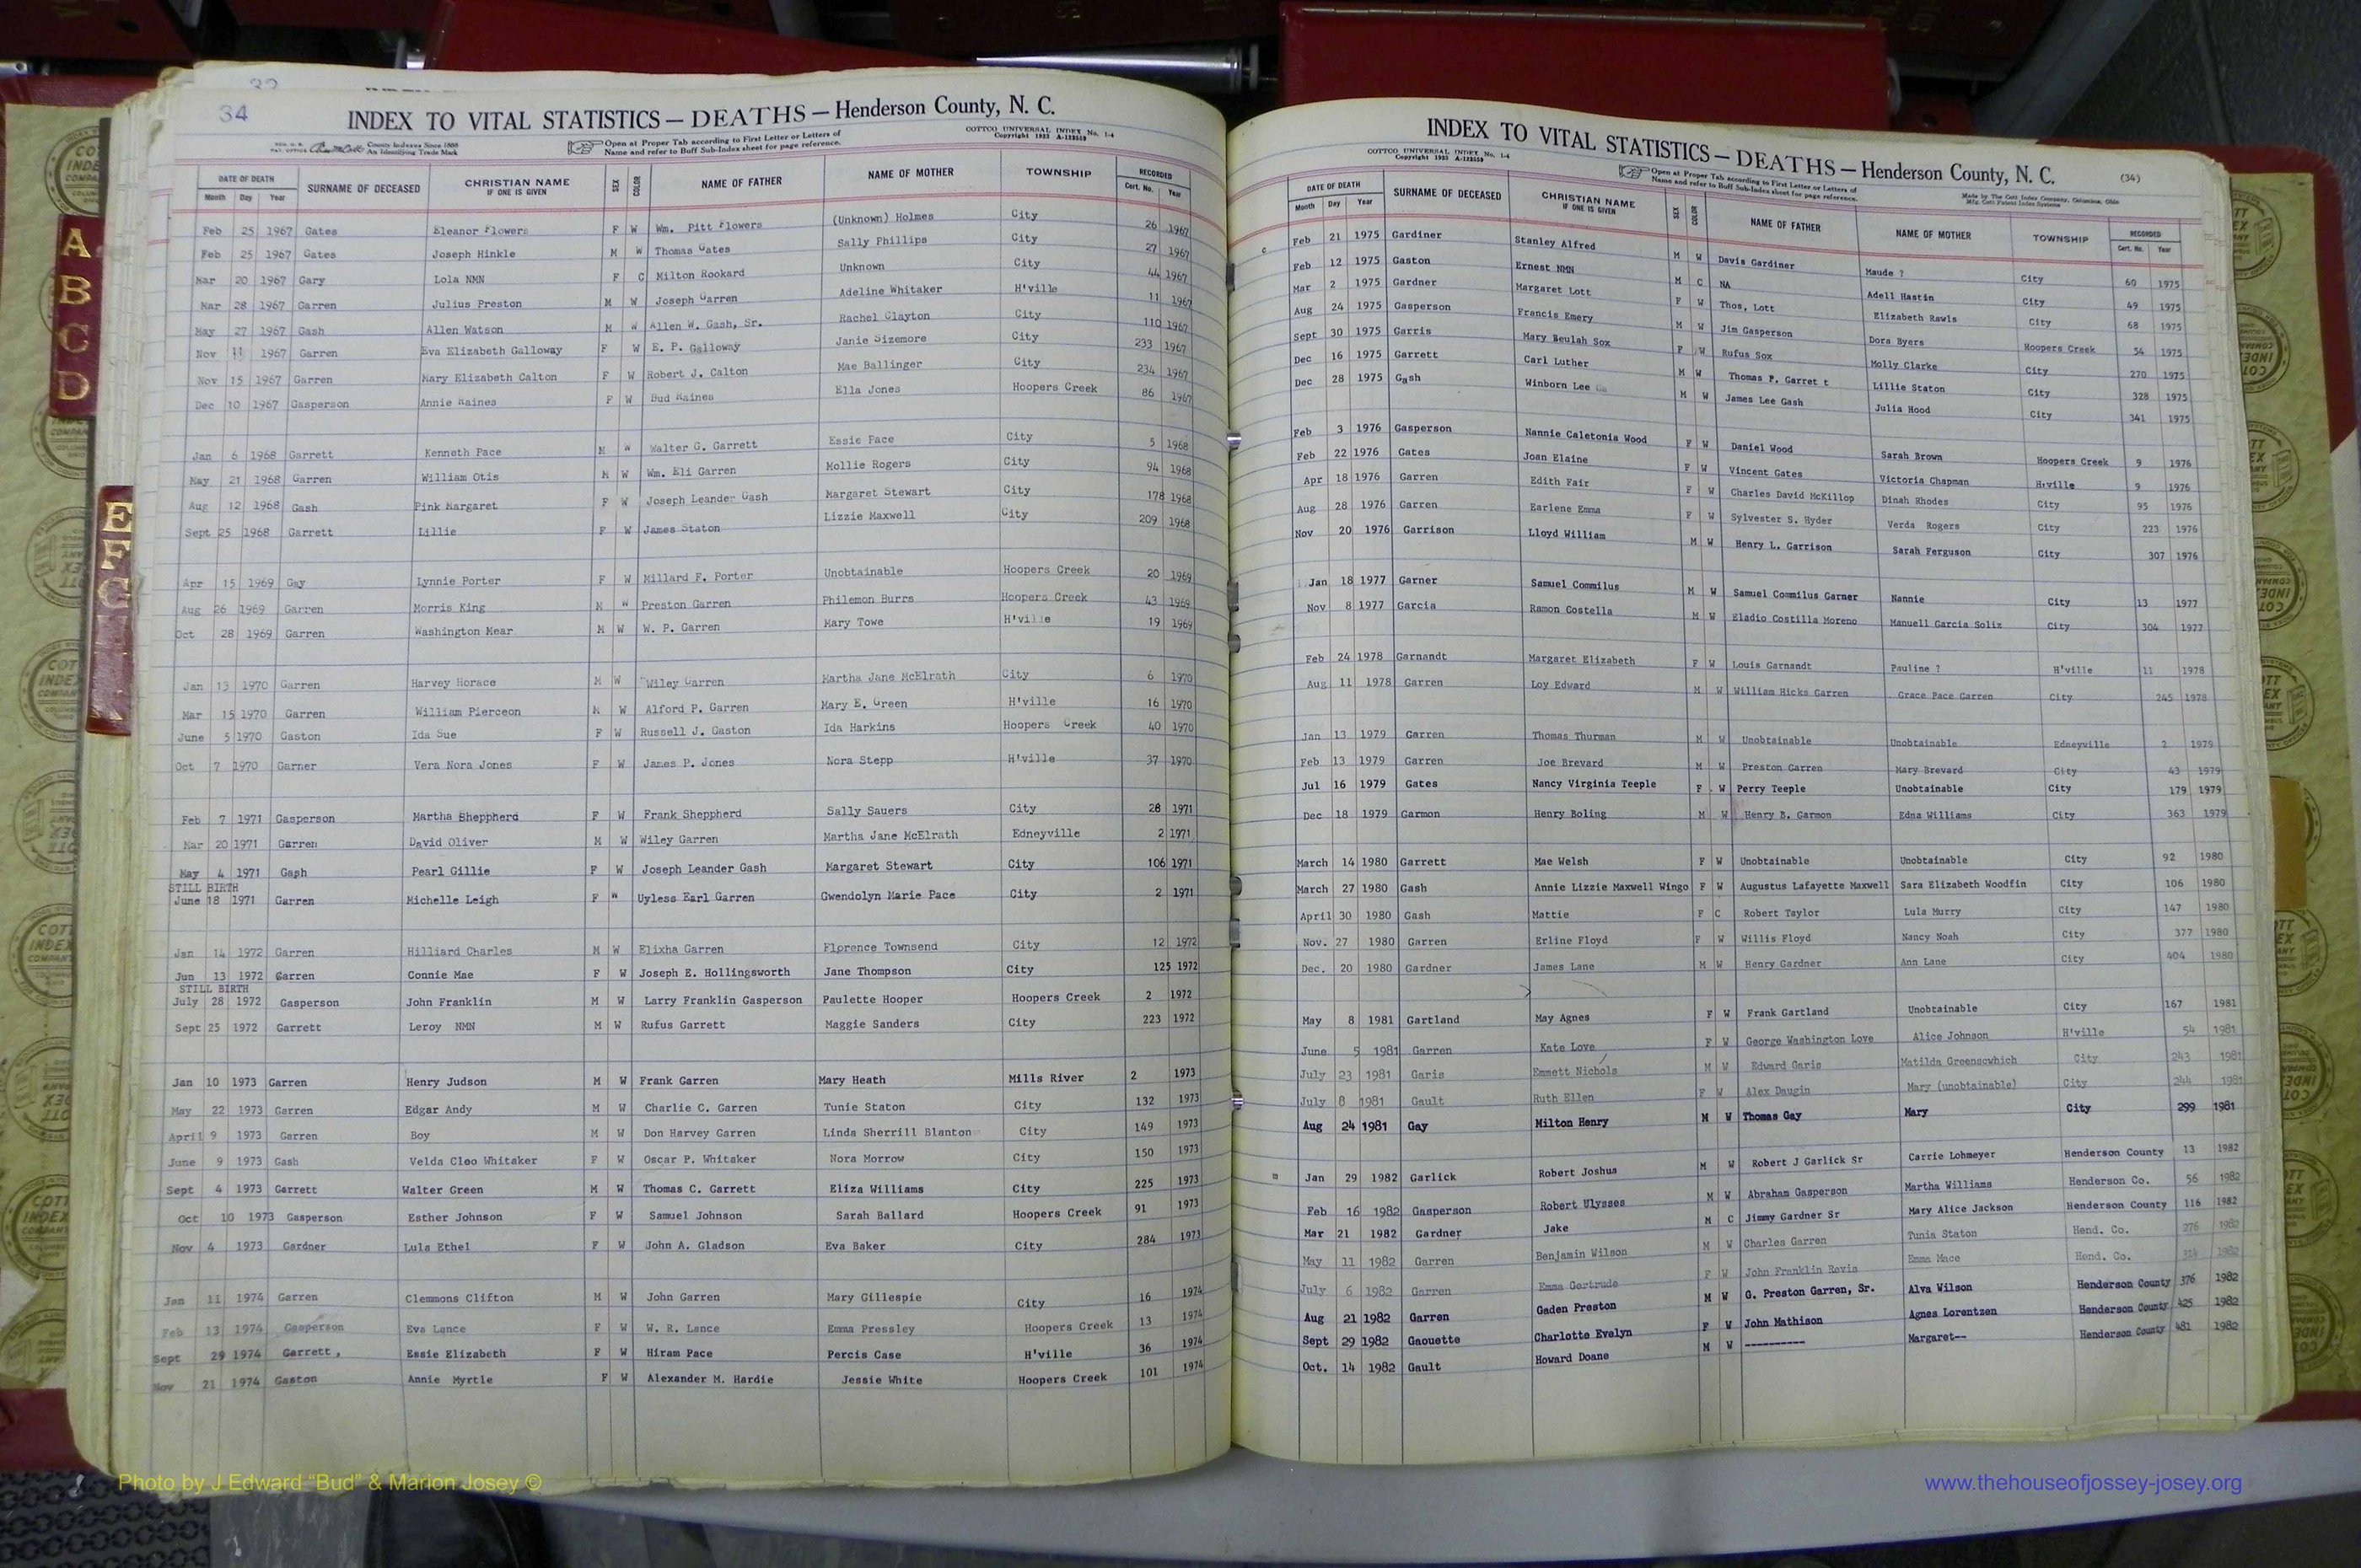 32
34
INDEX TO VITAL STATISTICS — DEATHS — Henderson County, N. C.
County Indexes Since 1888
An Identifying Trade Mark
Open at Proper Tab according to First Letter or Letters of
Name and refer to Buff Sub-Index sheet for page reference.
COTTCO UNIVERSAL INDEX No. 1-4
DATE OF DEATH SURNAME OF DECEASED CHRISTIAN NAME IF ONE IS GIVEN SEX COLOR NAME OF FATHER NAME OF MOTHER TOWNSHIP RECORDED
Month Day Year Cert. No. Year
Feb 25 1967 Gates Eleanor Flowers F W Wm. Pitt Flowers (Unknown) Holmes City 26 1967
Feb 25 1967 Gates Joseph Hinkle M W Thomas Gates Sally Phillips City 27 1967
Mar 20 1967 Gary Lola NMN F C Milton Rookard Unknown City 44 1967
Mar 28 1967 Garren Julius Preston M W Joseph Garren Adeline Whitaker H'ville 11 1967
May 27 1967 Gash Allen Watson M W Allen W. Gash, Sr. Rachel Clayton City 110 1967
Nov 11 1967 Garren Eva Elizabeth Galloway F W E. P. Galloway Janie Sizemore City 233 1967
Nov 15 1967 Garren Mary Elizabeth Calton F W Robert J. Calton Mae Ballinger City 234 1967
Dec 10 1967 Gasperson Annie Raines F W Bud Raines Ella Jones Hoopers Creek 86 1967
Jan 6 1968 Garrett Kenneth Pace M W Walter G. Garrett Essie Pace City 5 1968
May 21 1968 Garren William Otis M W Wm. Eli Garren Mollie Rogers City 94 1968
Aug 12 1968 Gash Pink Margaret F W Joseph Leander Gash Margaret Stewart City 178 1968
Sept 25 1968 Garrett Lillie F W James Staton Lizzie Maxwell City 209 1968
Apr 15 1969 Gay Lynnie Porter F W Millard F. Porter Unobtainable Hoopers Creek 20 1969
Aug 26 1969 Garren Morris King M W Preston Garren Philemon Burrs Hoopers Creek 43 1969
Oct 28 1969 Garren Washington Mear M W W. P. Garren Mary Towe H'ville 19 1969
Jan 13 1970 Garren Harvey Horace M W Wiley Garren Martha Jane McElrath City 6 1970
Mar 15 1970 Garren William Pierceon M W Alford P. Garren Mary E. Green H'ville 16 1970
June 5 1970 Gaston Ida Sue F W Russell J. Gaston Ida Harkins Hoopers Creek 40 1970
Oct 7 1970 Garner Vera Nora Jones F W James P. Jones Nora Stepp H'ville 37 1970
Feb 7 1971 Gasperson Martha Sheppherd F W Frank Sheppherd Sally Sauers City 28 1971
Mar 20 1971 Garren David Oliver M W Wiley Garren Martha Jane McElrath Edneyville 2 1971
May 4 1971 Gash Pearl Gillie F W Joseph Leander Gash Margaret Stewart City 106 1971
STILL BIRTH
June 18 1971 Garren Michelle Leigh F W Uyless Earl Garren Gwendolyn Marie Pace City 2 1971
Jan 14 1972 Garren Hilliard Charles M W Elixha Garren Florence Townsend City 12 1972
Jun 13 1972 Garren Connie Mae F W Joseph E. Hollingsworth Jane Thompson City 125 1972
STILL BIRTH
July 28 1972 Gasperson John Franklin M W Larry Franklin Gasperson Paulette Hooper Hoopers Creek 2 1972
Sept 25 1972 Garrett Leroy NMN M W Rufus Garrett Maggie Sanders City 223 1972
Jan 10 1973 Garren Henry Judson M W Frank Garren Mary Heath Mills River 2 1973
May 22 1973 Garren Edgar Andy M W Charlie C. Garren Tunie Staton City 132 1973
April 9 1973 Garren Boy M W Don Harvey Garren Linda Sherrill Blanton City 149 1973
June 9 1973 Gash Velda Cleo Whitaker F W Oscar P. Whitaker Nora Morrow City 150 1973
Sept 4 1973 Garrett Walter Green M W Thomas C. Garrett Eliza Williams City 225 1973
Oct 10 1973 Gasperson Esther Johnson F W Samuel Johnson Sarah Ballard Hoopers Creek 91 1973
Nov 4 1973 Gardner Lula Ethel F W John A. Gladson Eva Baker City 284 1973
Jan 11 1974 Garren Clemmons Clifton M W John Garren Mary Gillespie City 16 1974
Feb 13 1974 Gasperson Eva Lance F W W. R. Lance Emma Pressley Hoopers Creek 13 1974
Sept 29 1974 Garrett, Essie Elizabeth F W Hiram Pace Percis Case H'ville 36 1974
Nov 21 1974 Gaston Annie Myrtle F W Alexander M. Hardie Jessie White Hoopers Creek 101 1974
A
B
C
D
E
F
G
Photo by J Edward “Bud” & Marion Josey ©
INDEX TO VITAL STATISTICS — DEATHS — Henderson County, N. C. (34)
COTTCO UNIVERSAL INDEX No. 1-4
Open at Proper Tab according to First Letter or Letters of
Name and refer to Buff Sub-Index sheet for page reference.
Made by The Cott Index Company, Columbus, Ohio
DATE OF DEATH SURNAME OF DECEASED CHRISTIAN NAME IF ONE IS GIVEN SEX COLOR NAME OF FATHER NAME OF MOTHER TOWNSHIP RECORDED
Month Day Year Cert. No. Year
c Feb 21 1975 Gardiner Stanley Alfred M W Davis Gardiner Maude ? City 60 1975
Feb 12 1975 Gaston Ernest NMN M C NA Adell Hastin City 49 1975
Mar 2 1975 Gardner Margaret Lott F W Thos, Lott Elizabeth Rawls City 68 1975
Aug 24 1975 Gasperson Francis Emery M W Jim Gasperson Dora Byers Hoopers Creek 54 1975
Sept 30 1975 Garris Mary Beulah Sox F W Rufus Sox Molly Clarke City 270 1975
Dec 16 1975 Garrett Carl Luther M W Thomas P. Garret t Lillie Staton City 328 1975
Dec 28 1975 Gash Winborn Lee M W James Lee Gash Julia Hood City 341 1975
Feb 3 1976 Gasperson Nannie Caletonia Wood F W Daniel Wood Sarah Brown Hoopers Creek 9 1976
Feb 22 1976 Gates Joan Elaine F W Vincent Gates Victoria Chapman H'ville 9 1976
Apr 18 1976 Garren Edith Fair F W Charles David McKillop Dinah Rhodes City 95 1976
Aug 28 1976 Garren Earlene Emma F W Sylvester S. Hyder Verda Rogers City 223 1976
Nov 20 1976 Garrison Lloyd William M W Henry L. Garrison Sarah Ferguson City 307 1976
Jan 18 1977 Garner Samuel Commilus M W Samuel Commilus Garner Nannie City 13 1977
Nov 8 1977 Garcia Ramon Costella M W Eladio Costilla Moreno Manuell Garcia Solis City 304 1977
Feb 24 1978 Garnandt Margaret Elizabeth F W Louis Garnandt Pauline ? H'ville 11 1978
Aug 11 1978 Garren Loy Edward M W William Hicks Garren Grace Pace Garren City 245 1978
Jan 13 1979 Garren Thomas Thurman M W Unobtainable Unobtainable Edneyville 2 1979
Feb 13 1979 Garren Joe Brevard M W Preston Garren Mary Brevard City 43 1979
Jul 16 1979 Gates Nancy Virginia Teeple F W Perry Teeple Unobtainable City 179 1979
Dec 18 1979 Garmon Henry Boling M W Henry B. Garmon Edna Williams City 363 1979
March 14 1980 Garrett Mae Welsh F W Unobtainable Unobtainable City 92 1980
March 27 1980 Gash Annie Lizzie Maxwell Wingo F W Augustus Lafayette Maxwell Sara Elizabeth Woodfin City 106 1980
April 30 1980 Gash Mattie F C Robert Taylor Lula Murry City 147 1980
Nov. 27 1980 Garren Erline Floyd F W Willis Floyd Nancy Noah City 377 1980
Dec. 20 1980 Gardner James Lane M W Henry Gardner Ann Lane City 404 1980
May 8 1981 Gartland May Agnes F W Frank Gartland Unobtainable City 167 1981
June 5 1981 Garren Kate Love F W George Washington Love Alice Johnson H'ville 54 1981
July 23 1981 Garis Emmett Nichols M W Edward Garis Matilda Greenscwhich City 243 1981
July 8 1981 Gault Ruth Ellen F W Alex Daugin Mary (unobtainable) City 244 1981
Aug 24 1981 Gay Milton Henry M W Thomas Gay Mary City 299 1981
Jan 29 1982 Garlick Robert Joshua M W Robert J Garlick Sr Carrie Lohmeyer Henderson County 13 1982
Feb 16 1982 Gasperson Robert Ulysses M W Abraham Gasperson Martha Williams Henderson Co. 56 1982
Mar 21 1982 Gardner Jake M C Jimmy Gardner Sr Mary Alice Jackson Henderson County 116 1982
May 11 1982 Garren Benjamin Wilson M W Charles Garren Tunia Staton Hend. Co. 276 1982
July 6 1982 Garren Emma Gertrude F W John Franklin Revis Emma Mace Hend. Co. 314 1982
Aug 21 1982 Garren Gaden Preston M W G. Preston Garren, Sr. Alva Wilson Henderson County 376 1982
Sept 29 1982 Gaouette Charlotte Evelyn F W John Mathison Agnes Lorentzen Henderson County 425 1982
Oct. 14 1982 Gault Howard Doane M W ---------- Margaret-- Henderson County 481 1982
www.thehouseofjossey-josey.org